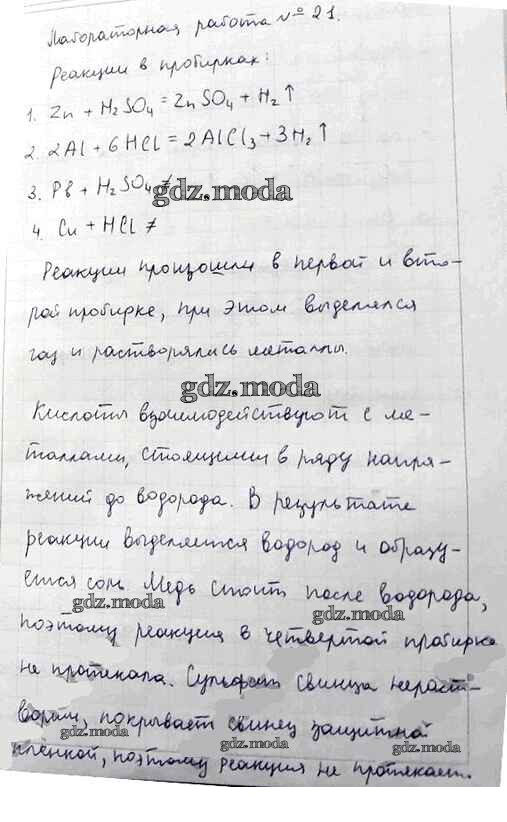 Лабораторная работа № 21.
Реакции в пробирках:
1. Zn + H₂SO₄ = ZnSO₄ + H₂↑
2. 2Al + 6HCl = 2AlCl₃ + 3H₂↑
3. Pb + H₂SO₄ ≠
gdz.moda
4. Cu + HCl ≠
Реакции произошли в первой и вто-
рой пробирке, при этом выделялся
газ и растворялись металлы.
gdz.moda
Кислоты взаимодействуют с ме-
таллами, стоящими в ряду напря-
жений до водорода. В результате
реакции выделяется водород и образу-
ется соль. Медь стоит после водорода,
gdz.moda gdz.moda
поэтому реакция в четвертой пробирке
не протекала. Сульфат свинца нераст-
gdz.moda gdz.moda
ворим, покрывает свинец защитной
gdz.moda gdz.moda
пленкой, поэтому реакция не протекает.